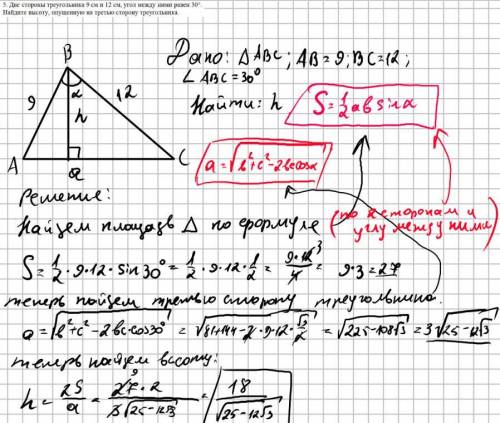 5. Две стороны треугольника 9 см и 12 см, угол между ними равен 30°.
Найдите высоту, опущенную на третью сторону треугольника.
Дано: ΔABC; AB=9; BC=12;
∠ABC=30°
Найти: h
S=½ab sinα
a=√(b²+c²-2bc cosα)
B
α
9
12
h
A
a
C
Решение:
Найдем площадь Δ по формуле (по 2 сторонам и
углу между ними)
S=1/2·9·12·sin30°=1/2·9·12·1/2=9·12³/4=9·3=27
теперь найдем третью сторону треугольника.
a=√(b²+c²-2bc·cos30°)=√(81+144-2·9·12·√3/2)=√(225-108√3)=3√(25-12√3)
теперь найдем высоту:
h=2S/a=27⁹·2/3√(25-12√3)=18/√(25-12√3)